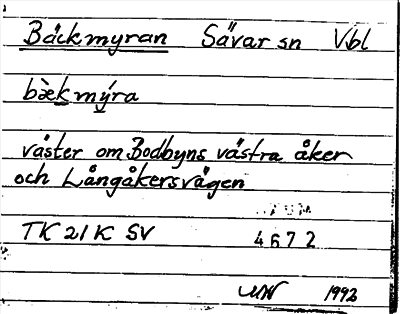 Bäckmyran Sävar sn Vbl
bæ̀kmýra
väster om Bodbyns västra åker
och Långåkersvägen
TK 21K SV 4672
1992